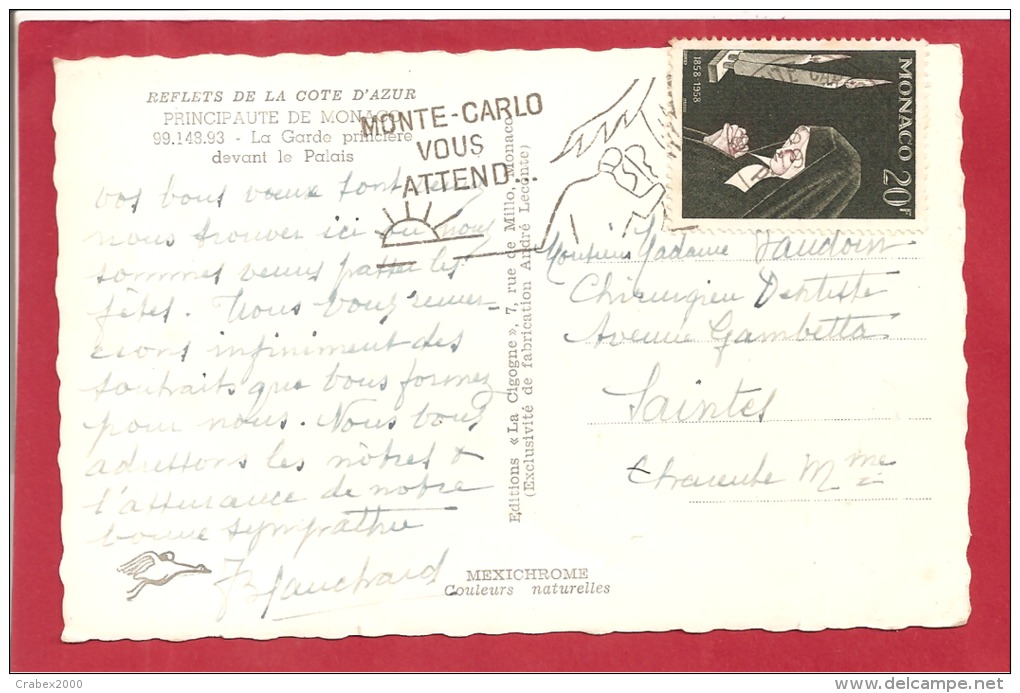 REFLETS DE LA COTE D'AZUR
PRINCIPAUTE DE MONACO
99.148.93 - La Garde princière
devant le Palais
MONTE-CARLO
VOUS
ATTEND...
MONACO
20F
1858-1958
vos bons vœux sont venus
nous trouver ici où nous
sommes venus passer les
fêtes. Nous vous remer-
cions infiniment des
souhaits que vous formez
pour nous. Nous vous
adressons les nôtres &
l'assurance de notre
bonne sympathie
Blanchard
Editions « La Cigogne », 7, rue de Millo, Monaco
(Exclusivité de fabrication André Leconte)
Monsieur Madame
Chirurgien Dentiste
Avenue Gambetta
Saintes
Charente Mme
MEXICHROME
Couleurs naturelles
Crabex2000
delcampe.net